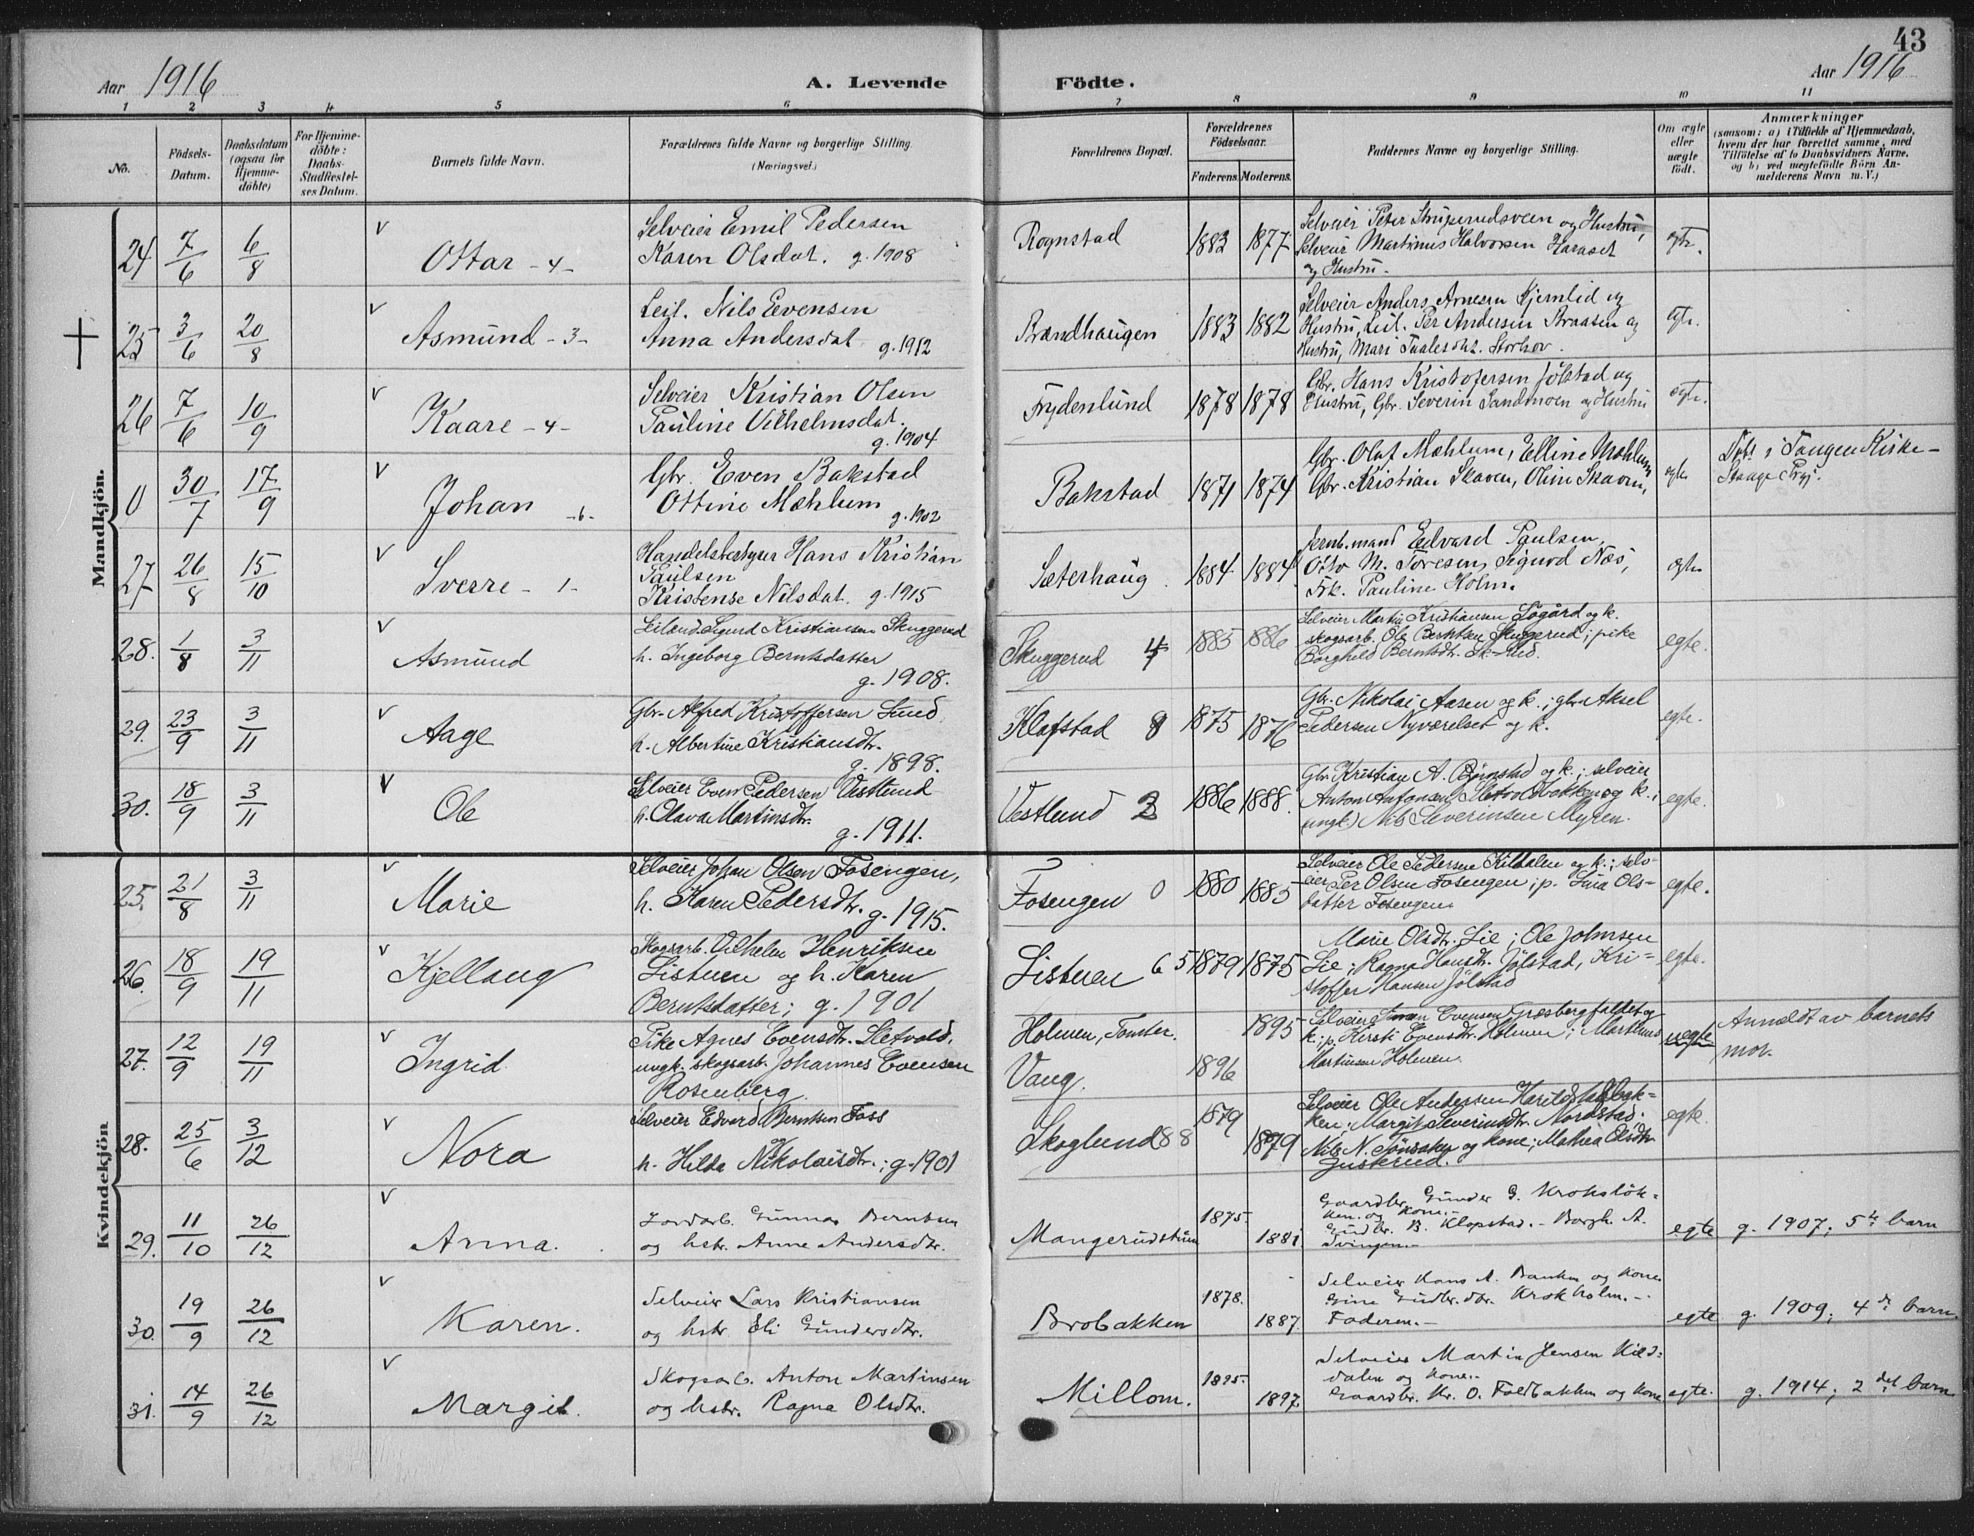 43
Aar 1916
A. Levende
Födte.
Aar 1916
1 2 3 4 5 6 7 8 9 10 11
No.
Födsels-Datum.
Daabsdatum (ogsaa for Hjemme-döbte)
For Hjemme-döbte: Daabs-Stadfæstel-ses Datum.
Barnets fulde Navn.
Forældrenes fulde Navne og borgerlige Stilling. (Næringsvei.)
Forældrenes Bopæl.
Forældrenes Födselsaar.
Faderens. Moderens.
Faddernes Navne og borgerlige Stilling.
Om ægte eller uægte födt.
Anmærkninger
(saasom: a) i Tilfælde af Hjemmedaab,
hvem der har forrettet samme, med
Tilföielse af to Daabsvidners Navne,
og b) ved uægtefödte Börn An-
melderens Navn m. V.)
Mandkjön.
24 7/6 6/8 v Ottar - 4 -
Selveier Emil Pedersen
Karen Olsdat. g. 1908
Rognstad 1883 1877
Selveier Peter Struperudsveen og Hustru,
Selveier Martinus Halvorsen Haraset
og Hustru.
egte.
25 3/6 20/8 v Asmund - 3 -
Leil. Nils Evensen
Anna Andersdat g. 1912
Brændhaugen 1883 1882
Selveier Anders Arnesen Kjernlid og
Hustru, Leil. Per Andersen Braasen og
Hustru, Mari Storhov.
egte.
26 7/6 10/9 v Kaare - 4 -
Selveier Kristian Olsen
Pauline Vilhelmsdat. g. 1904
Frydenlund 1878 1878
Gbr. Hans Kristofersen Jölstad og
Hustru, Gbr. Severin Sandmoen og Hustru
egte.
0 30/7 17/9 v Johan - 6 -
Gbr. Even Bakstad
Ottine Mæhlum g. 1902
Bakstad 1871 1874
Gbr. Olaf Mæhlum, Elline Mæhlum
Gbr. Kristian Skaven, Oline Skaven,
egte
Döbt i Tangen Kirke -
Stange Prgj.
27 26/8 15/10 v Sverre - 1 -
Handelsbestyrer Hans Kristian
Paulsen
Kristense Nilsdat. g. 1915
Sæterhaug. 1884 1884
Jernb.mand Edvard Paulsen,
Otto M. Toresen, Sigurd Næs,
Frk. Pauline Holm.
egte
28. 1/8 3/11 v Asmund
Leilænd. Sigurd Kristiansen Skuggerud
h. Ingeborg Berntsdatter
g. 1908.
Skuggerud 4 1885 1886
Selveier Martin Kristiansen Søgård og k.
skogsarb. Ole Berntsen Skuggerud; pike
Borghild Berntsdt.
egte.
29. 23/9 3/11 v Aage
Gbr. Alfred Kristoffersen Lund
h. Albertine Kristiansdtr.
g. 1898.
Klafstad 8 1875 1876
Gbr. Nikolai Aasen og k.; gbr. Aksel
Pedersen Nyværelset og k.
egte.
30. 18/9 3/11 v Ole
Selveier Even Pedersen Vestlund
h. Olava Martinsdtr.
g. 1911.
Vestlund 2 1886 1888.
Gbr. Kristian A. Børnstad og k.; selveier
Anton Antonsen Sletvoldbakken og k.;
(ungk.) Nils Severinsen Myren.
egte.
Kvindekjön
25. 21/8 3/11 v Marie
Selveier Johan Olsen Fosengen,
h. Karen Pedersdtr. g. 1915.
Fosengen 0 1880 1885
Selveier Ole Pedersen Kildalen og k.; selv-
eier Per Olsen Fosengen; p. Lina Ols-
datter Fosengen
egte.
26. 18/9 19/11 v Kjellaug
Skogsarb. Vilhelm Henriksen
Listuen og h. Karen
Berntsdatter; g. 1901
Listuen 6 5 1879 1875
Marie Olsdtr. Lie; Ole Johnsen
Lie; Ragna Hansdtr. Jølstad, Kri-
stoffer Hansen Jølstad
egte.
27. 12/9 19/11 v Ingrid
Pike Agnes Evensdtr. Sletvold,
ungk. skogsarb. Johannes Evensen
Rosenberg.
Holmen, Tomter
Vang. 1896 1895
Selveier Evensen Græsbergfaldet og
k.; p. Kirsti Evensdtr. Holmen;
Martinsen Holmen.
uegte
Anmeldt av barnets
mor.
28. 25/6 3/12 v Nora
Selveier Edvard Berntsen Foss
og
h. Hilda Nikolaisdtr.; g. 1901
Skoglund 88 1879 1879
Selveier Ole Andersen
ken; Margit Severinsdtr. Nordstad.
Nils N. og kone; Mathea Olsdtr.
egte.
29. 11/10 26/12 v Anna.
Jordarb. Gunnar Berntsen
og hstr. Anne Andersdtr.
Mangerudstuen 1875. 1881
Gaardbr. Gunder G. Krokslök-
ken og kone.-
Gudbr. B. Klopstad. - Borgh. A.
Svingen.-
egte
g. 1907; 5te barn
30. 19/9 26/12 v Karen.
Selveier Lars Kristiansen
og hstr. Eli Gundersdtr.
Brobakken 1878. 1887.
Selveier Hans A. Banken og kone
Gine Gudbr.dtr. Krokholm.-
Faderen.-
egte
g. 1909; 4de barn.
31. 14/9 26/12 v Margit.
Skogsarb. Anton Martinsen
og hstr. Ragna Olsdtr.
Millom. 1895. 1897.
Selveier Martin Jensen Kild-
dalen og kone.-
Gaardbr. Kr. O. Foldbakken og kone
egte.
g. 1914; 2det barn